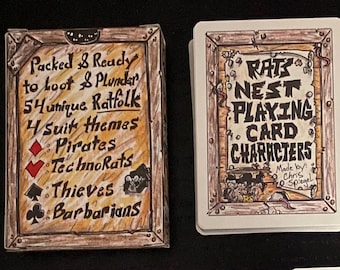 Packed & Ready
to loot & Plunder
54 unique Ratfolk
4 suit themes
Pirates
TechnoRats
Thieves
Barbarians
RATS
NEST
PLAYING
CARD
CHARACTERS
Made by:
Chris